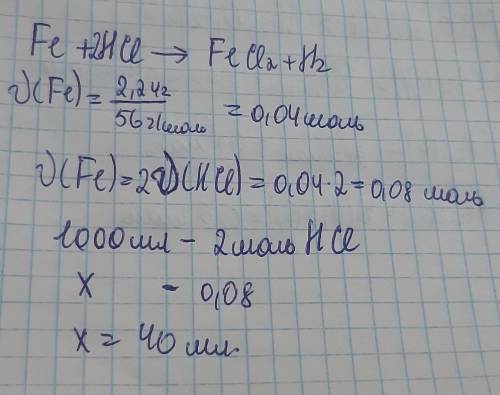 Fe + 2HCl → FeCl₂ + H₂
ν(Fe) = 2,24г / 56 г/моль = 0,04 моль
ν(Fe) = 2ν(HCl) = 0,04·2 = 0,08 моль
1000 мл – 2 моль HCl
x – 0,08
x = 40 мл.